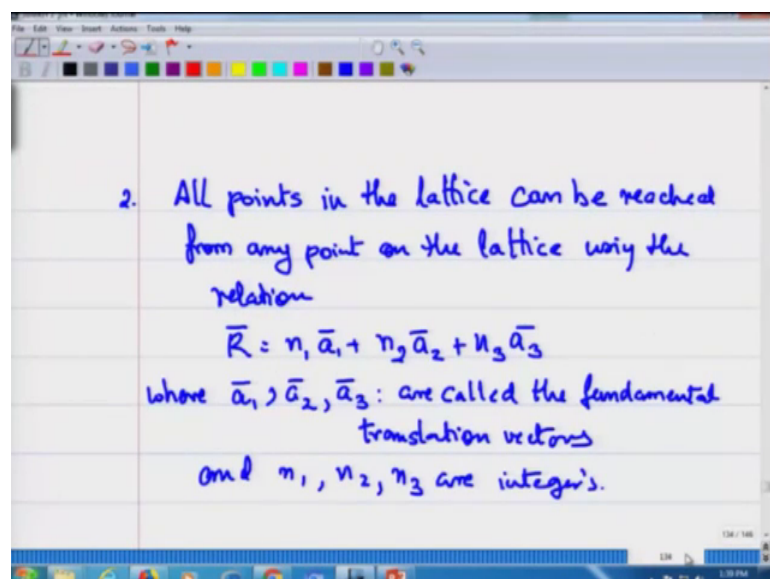 File Edit View Insert Actions Tools Help
2. All points in the lattice can be reached
from any point on the lattice using the
relation
R̅ = n₁ a̅₁ + n₂ a̅₂ + n₃ a̅₃
where a̅₁, a̅₂, a̅₃ : are called the fundamental
translation vectors
and n₁, n₂, n₃ are integer's.
134 / 146
134
1:39 PM